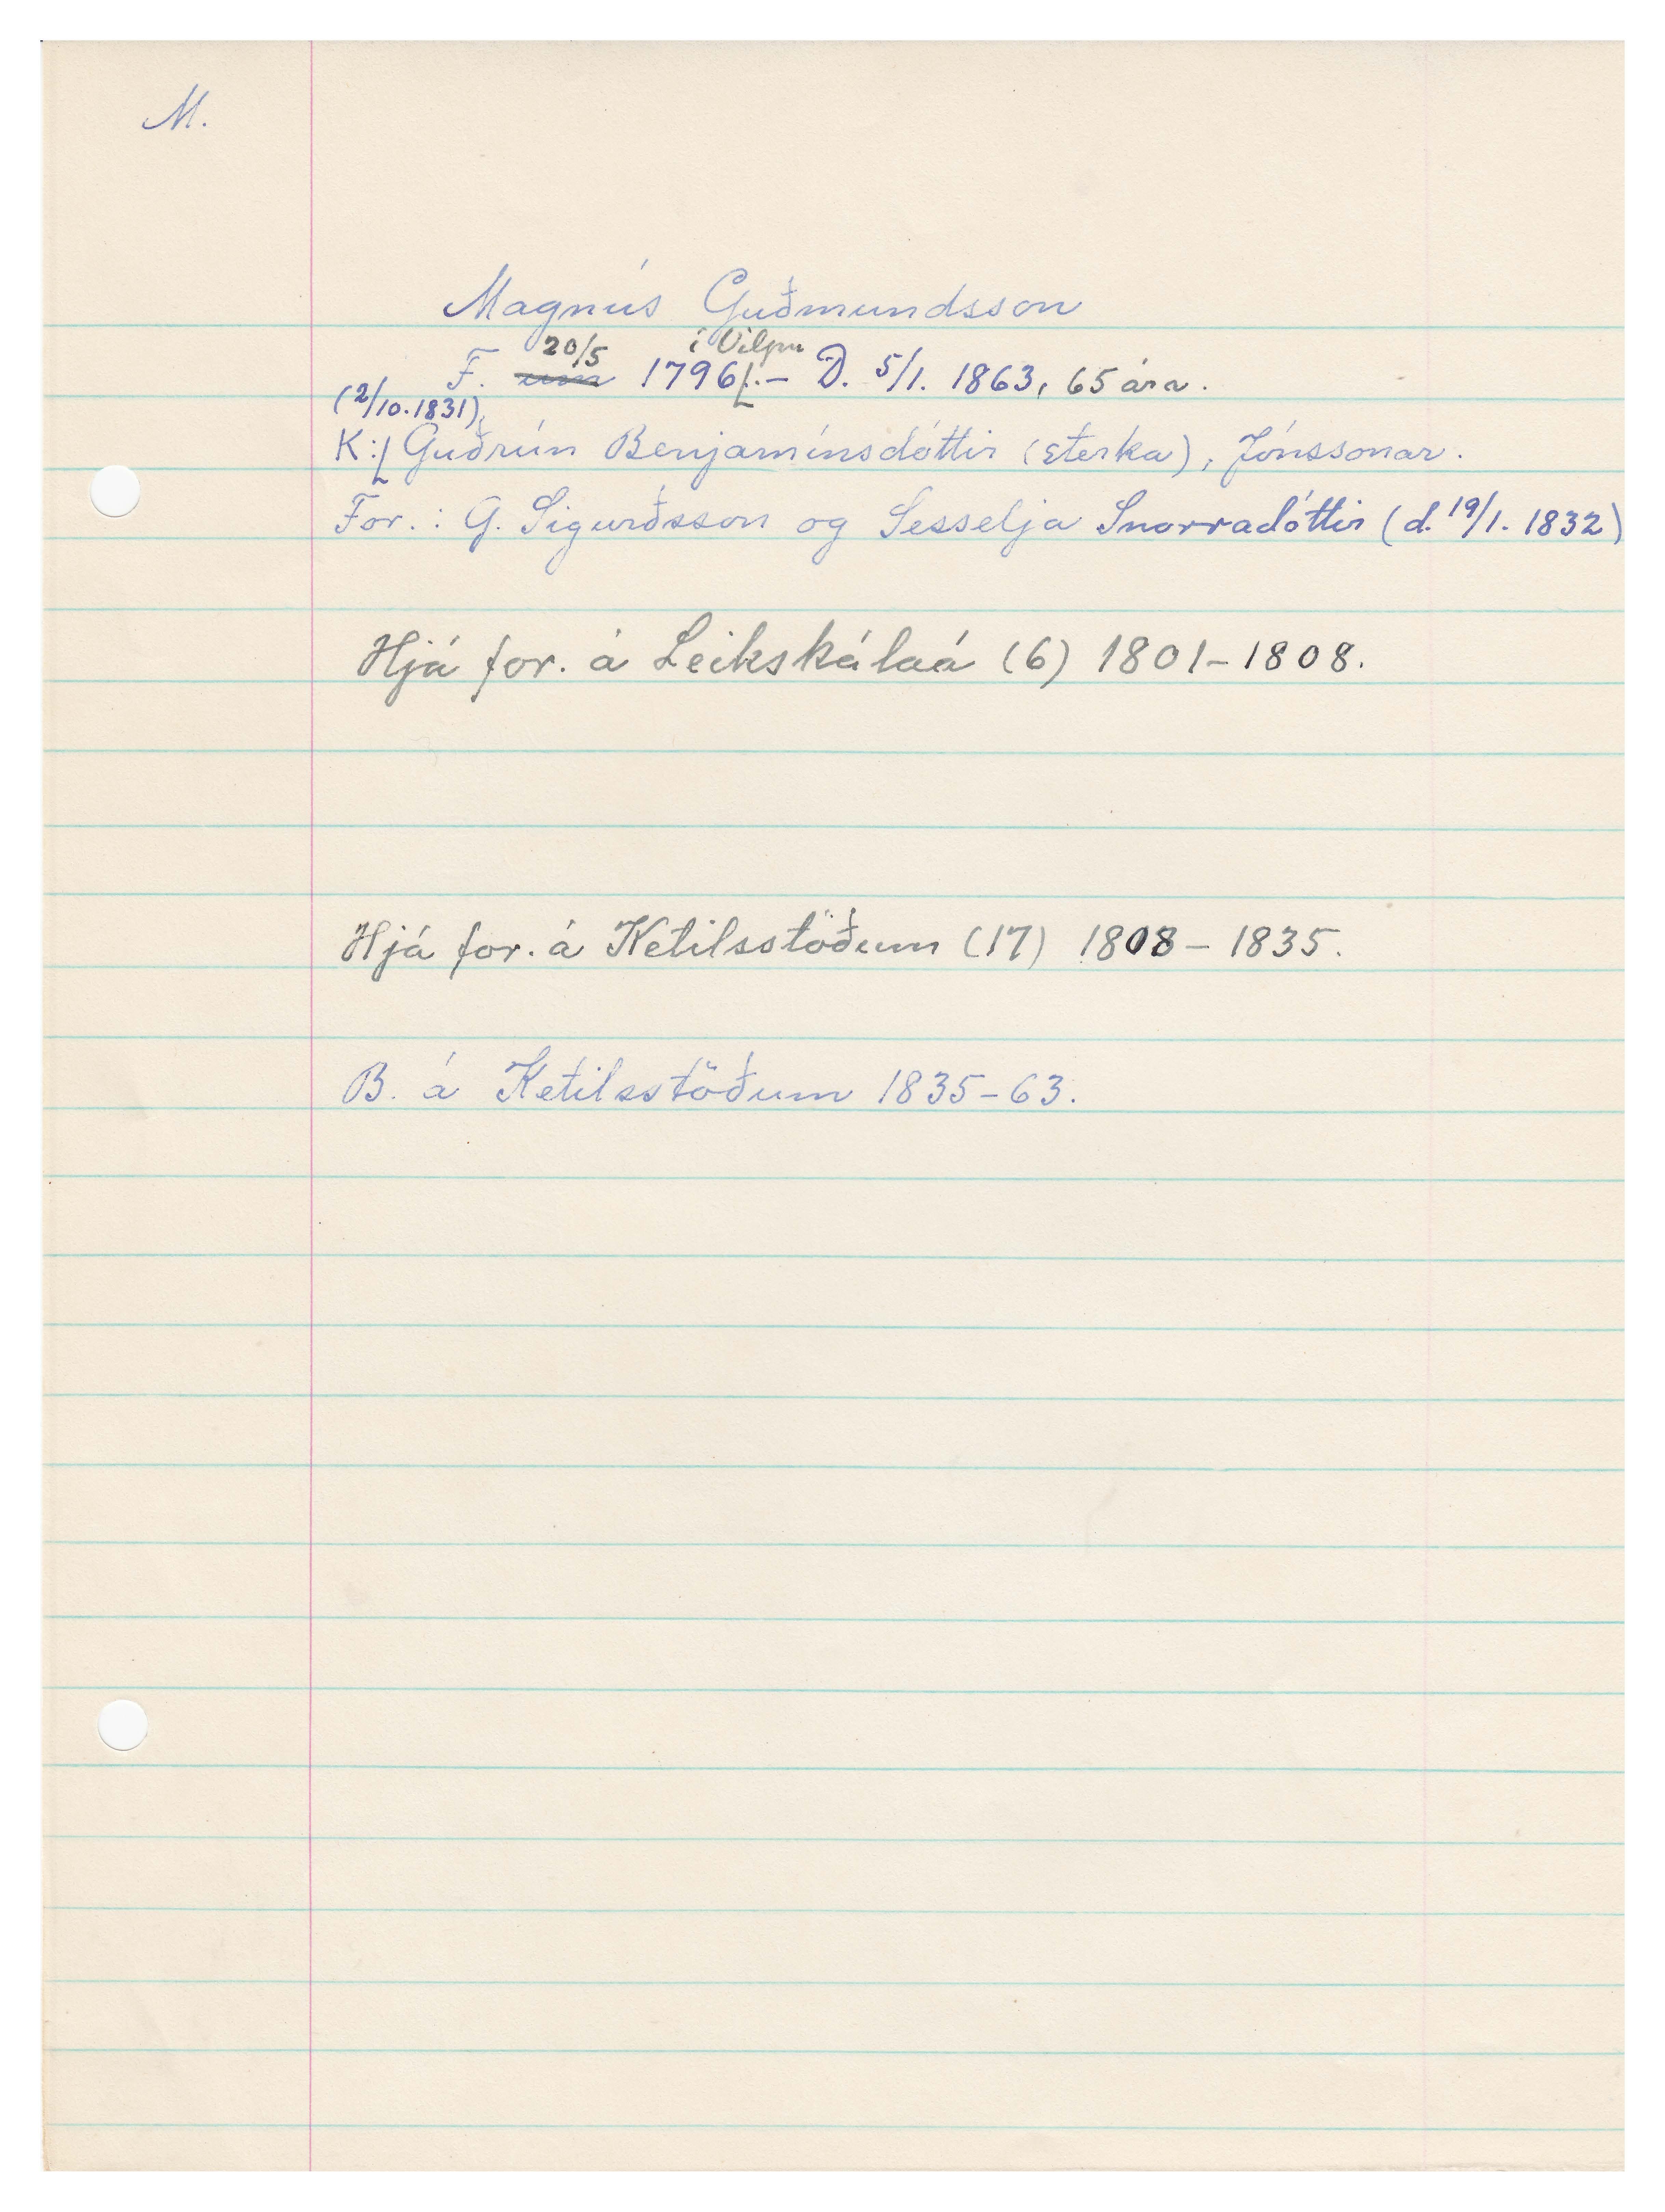 M.
Magnús Guðmundsson
20/5 í Vilpu
F. um 1796.- D. 5/1. 1863, 65 ára.
(2/10.1831)
K: Guðrún Benjamínsdóttir (sterka), Jónssonar.
For.: G. Sigurðsson og Sesselja Snorradóttir (d. 19/1. 1832)
Hjá for. á Leikskálaá (6) 1801-1808.
Hjá for. á Ketilsstöðum (17) 1808-1835.
B. á Ketilsstöðum 1835-63.